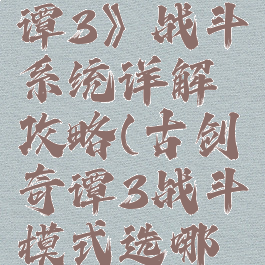 谭3》战斗
系统详解
攻略(古剑
奇谭3战斗
模式选哪